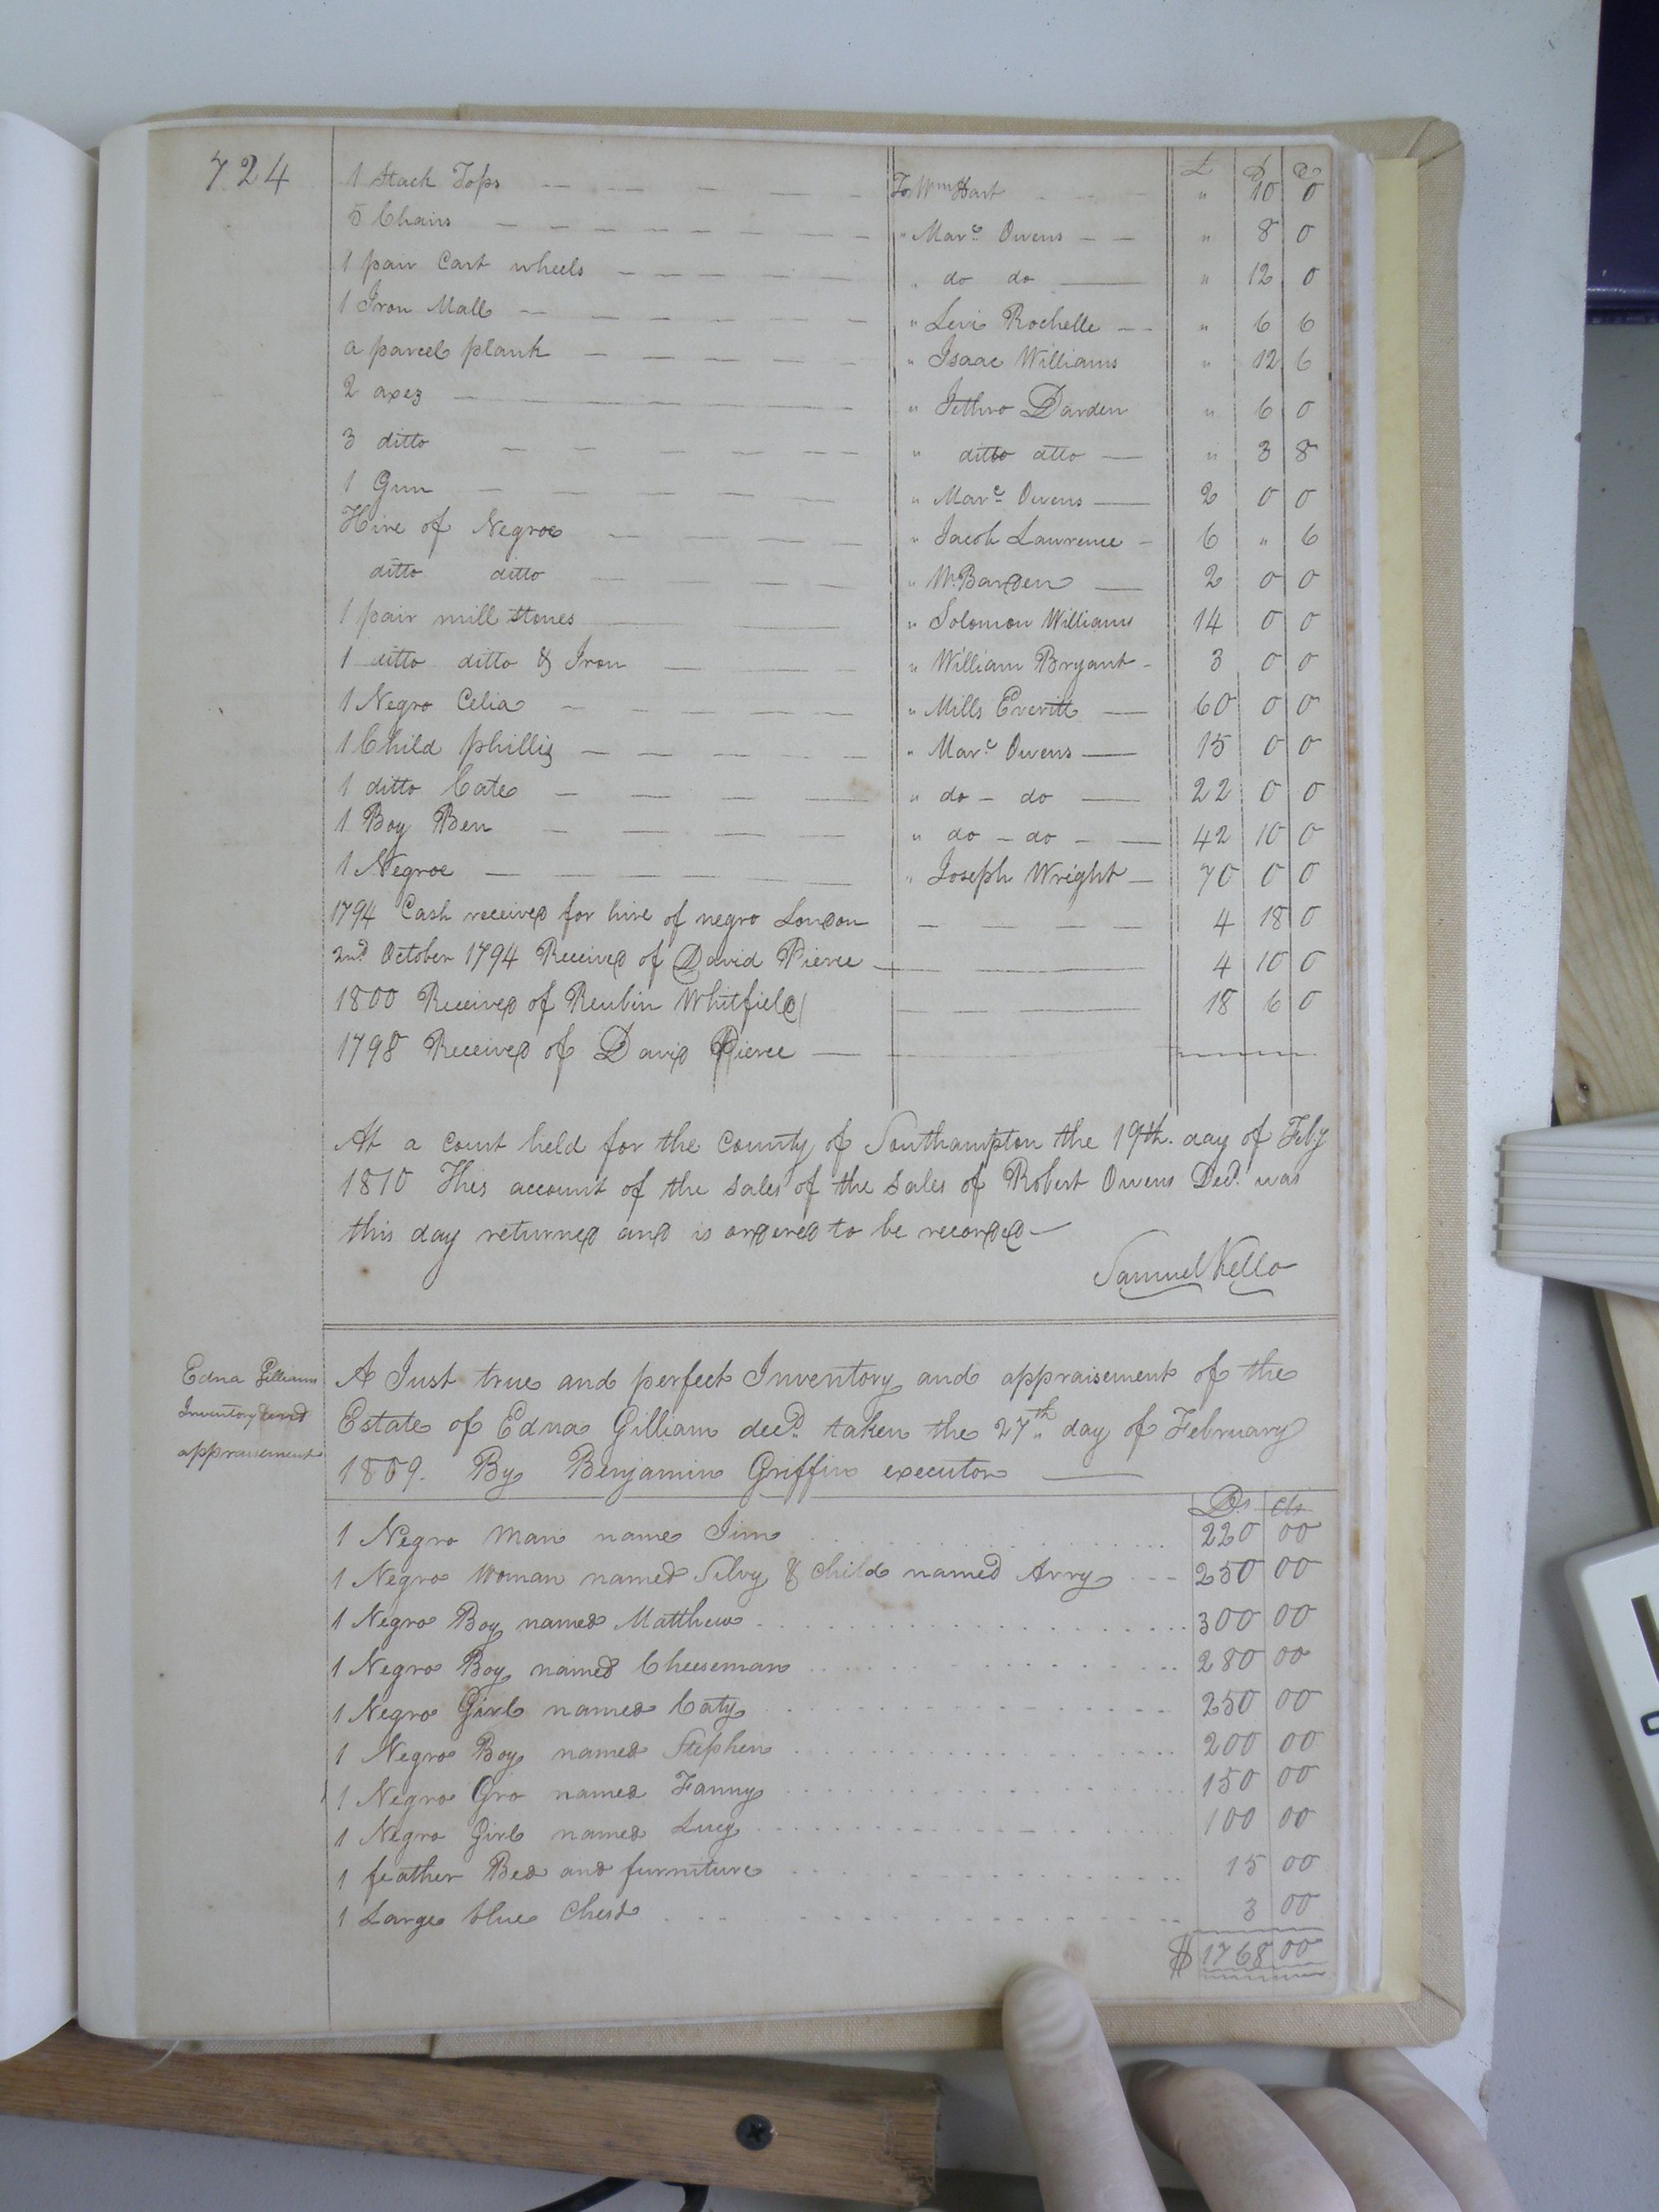 724
£ S D
1 Stack Tops — — — — — To Wm Hart " 10 0
5 Chairs — — — — — " Marc. Owens — — " 8 0
1 pair Cart wheels — — — — — " do do — " 12 0
1 Iron Mall — — — — — " Levi Rochelle — " 6 6
a parcel plank — — — — — " Isaac Williams " 12 6
2 axes — — — — — " Jethro Darden " 6 0
3 ditto — — — — — " ditto ditto — " 3 8
1 Gun — — — — — " Marc. Owens — 2 0 0
Hire of Negroe — — — — " Jacob Lawrence — 6 " 6
ditto ditto — — — — " W. Barden — 2 0 0
1 pair mill stones — — " Solomon Williams 14 0 0
1 ditto ditto & Iron — — — " William Bryant — 3 0 0
1 Negro Celia — — — — — " Mills Everitt — 60 0 0
1 Child phillis — — — — — " Marc. Owens — 15 0 0
1 ditto Cate — — — — " do — do — 22 0 0
1 Boy Ben — — — — " do — do — 42 10 0
1 Negroe — — — — — " Joseph Wright — 70 0 0
1794 Cash received for hire of negro London — — — — 4 18 0
2nd October 1794 Received of David Pierce — — 4 10 0
1800 Received of Reubin Whitfield — — — 18 6 0
1798 Received of David Pierce —
At a court held for the county of Southampton the 19th. day of Feby
1810 This account of the sales of the sales of Robert Owens Decd. was
this day returned and is ordered to be recorded —
Samuel Kello
Edna Gilliam
Inventory and
appraisement
A Just true and perfect Inventory and appraisement of the
Estate of Edna Gilliam decd. taken the 27th day of February
1809. By Benjamin Griffin executor —
Ds cts
1 Negro man name Jim 220 00
1 Negro Woman named Silvy & child named Arry 250 00
1 Negro Boy named Matthew 300 00
1 Negro Boy named Cheeseman 280 00
1 Negro Girl named Caty 250 00
1 Negro Boy named Stephen 200 00
1 Negro Gro named Fanny 150 00
1 Negro Girl named Lucy 100 00
1 feather Bed and furniture 15 00
1 Large blue Chest 3 00
$ 1768 00